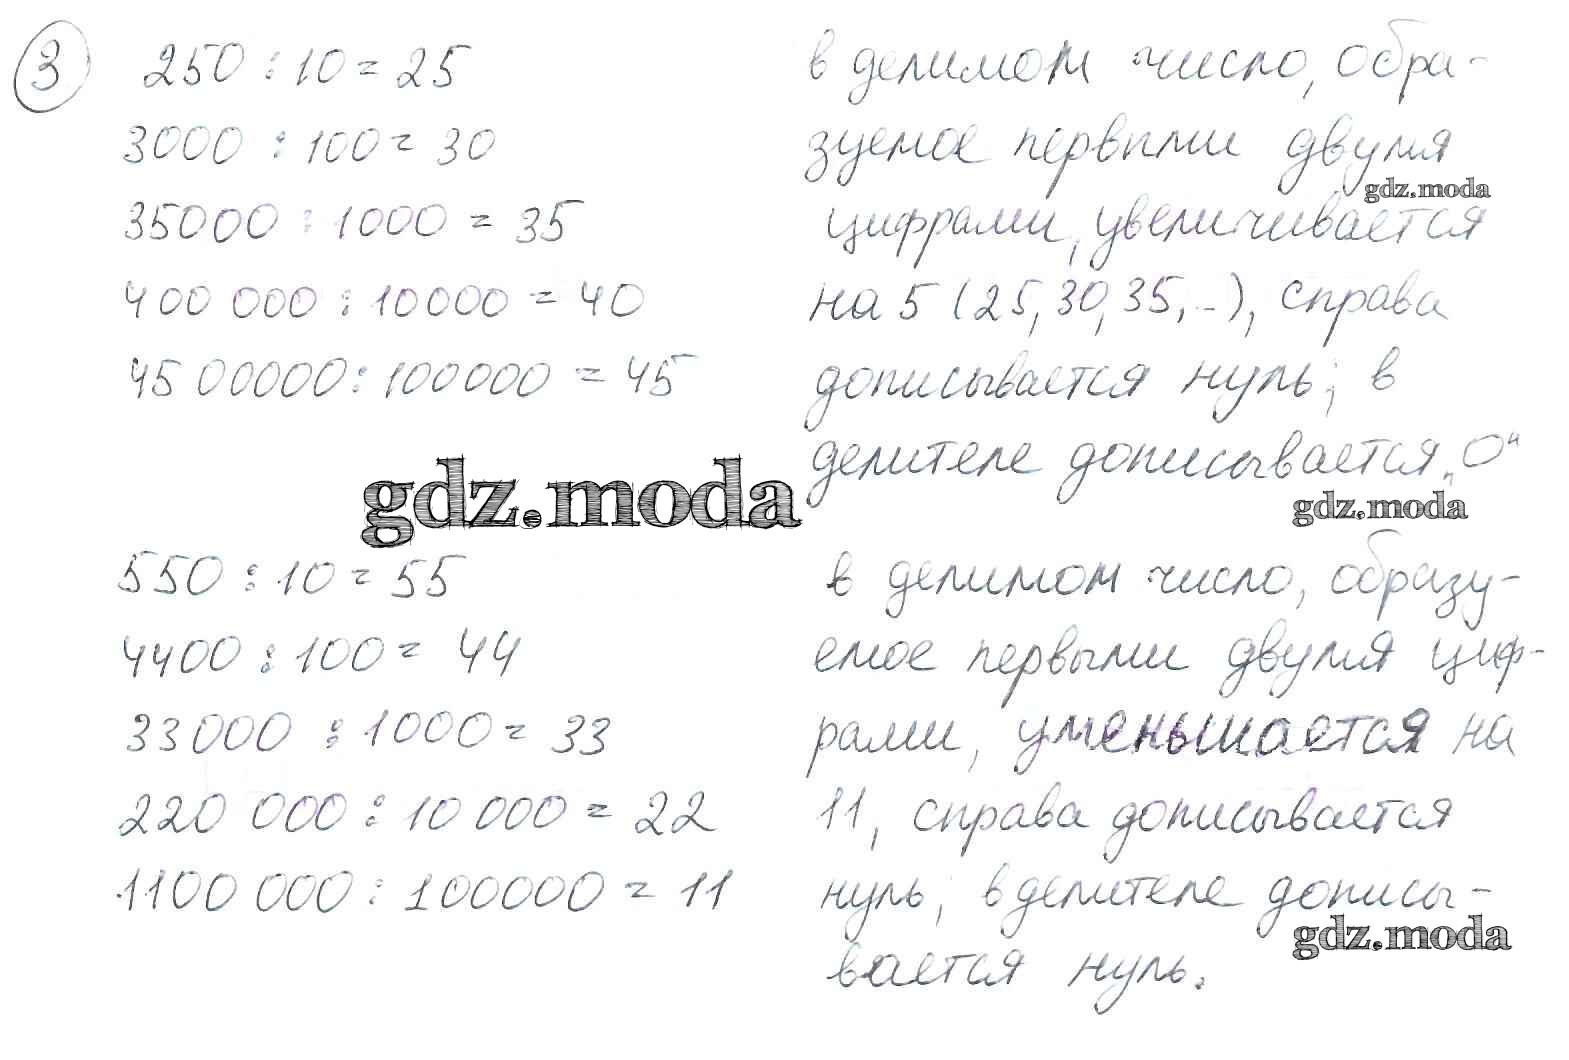 3 250 : 10 = 25
3000 : 100 = 30
35000 : 1000 = 35
400 000 : 10000 = 40
45 00000 : 100000 = 45
в делимом число, обра-
зуемое первыми двумя
gdz.moda
цифрами, увеличивается
на 5 (25, 30, 35, ...), справа
дописывается нуль; в
делителе дописывается „0“
gdz.moda
gdz.moda
550 : 10 = 55
4400 : 100 = 44
33000 : 1000 = 33
220 000 : 10 000 = 22
1100 000 : 100000 = 11
в делимом число, образу-
емое первыми двумя циф-
рами, уменьшается на
11, справа дописывается
нуль; в делителе дописы-
gdz.moda
вается нуль.